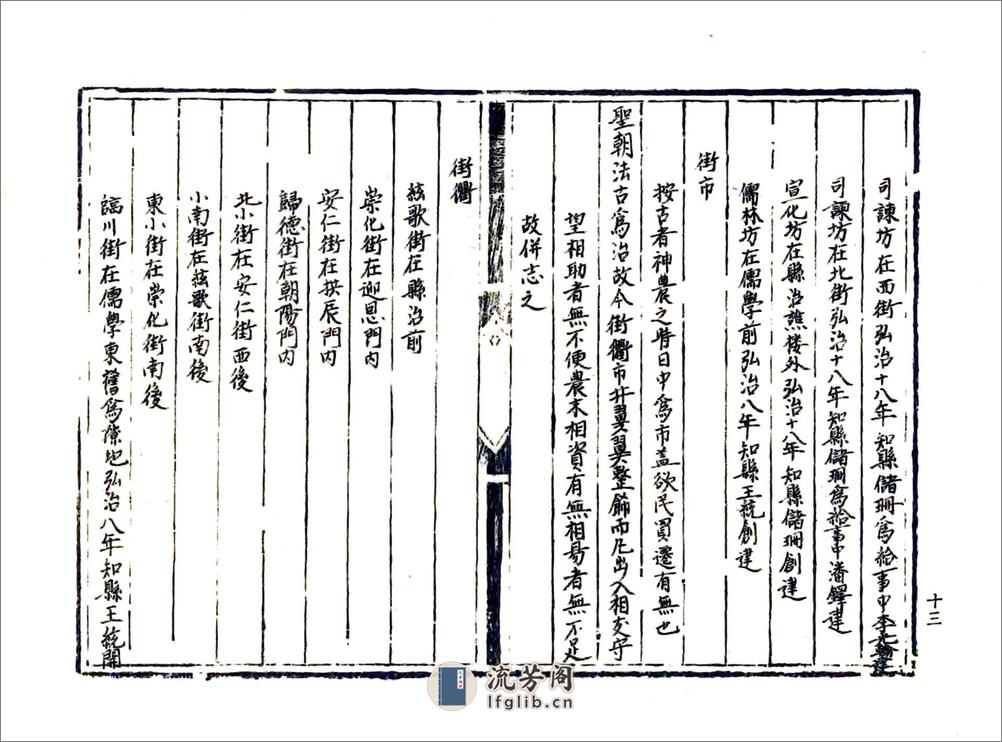 司諫坊在西街弘治十八年知縣儲珊爲給事中李
司諫坊在北街弘治十八年知縣儲珊爲給事中潘鐸建
宣化坊在縣治譙楼外弘治十八年知縣儲珊創建
儒林坊在儒學前弘治八年知縣王統創建
街市
按古者神農之時日中爲市蓋欲民買遷有無也
聖朝法古爲治故今街衢市井翼翼整飾而凡出入相友守
望相助者無不便農末相資有無相易者無不足
故併志之
街衢
絃歌街在縣治前
崇化街在迎恩門内
安仁街在拱辰門内
歸德街在朝陽門内
北小街在安仁街西後
小南街在絃歌街南後
東小街在崇化街南後
頴川街在儒學東舊爲隙地弘治八年知縣王統開
十三
流芳阁
lfglib.cn